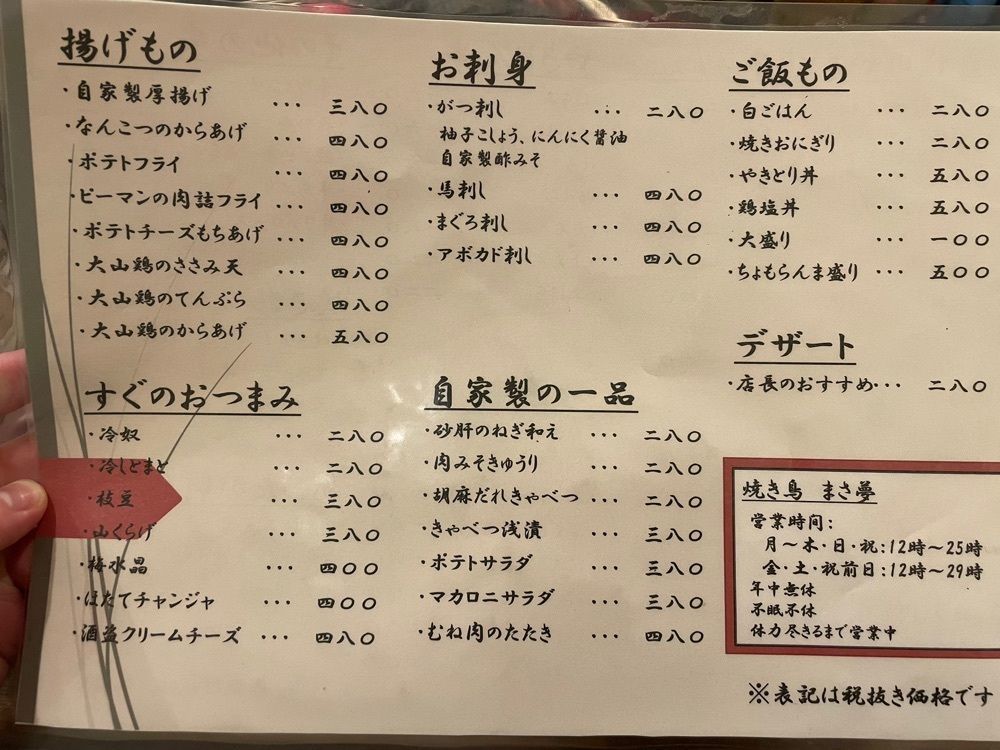 揚げもの
・自家製厚揚げ … 三八〇
・なんこつのからあげ … 四八〇
・ポテトフライ … 四八〇
・ピーマンの肉詰フライ … 四八〇
・ポテトチーズもちあげ … 四八〇
・大山鶏のささみ天 … 四八〇
・大山鶏のてんぷら … 四八〇
・大山鶏のからあげ … 五八〇
すぐのおつまみ
・冷奴 … 二八〇
・冷しとまと … 二八〇
・枝豆 … 三八〇
・山くらげ … 三八〇
・梅水晶 … 四〇〇
・ほたてチャンジャ … 四〇〇
・酒盗クリームチーズ … 四八〇
お刺身
・がつ刺し … 二八〇
柚子こしょう、にんにく醬油
自家製酢みそ
・馬刺し … 四八〇
・まぐろ刺し … 四八〇
・アボカド刺し … 四八〇
自家製の一品
・砂肝のねぎ和え … 二八〇
・肉みそきゅうり … 二八〇
・胡麻だれきゃべつ … 二八〇
・きゃべつ浅漬 … 三八〇
・ポテトサラダ … 三八〇
・マカロニサラダ … 三八〇
・むね肉のたたき … 四八〇
ご飯もの
・白ごはん … 二八〇
・焼きおにぎり … 二八〇
・やきとり丼 … 五八〇
・鶏塩丼 … 五八〇
・大盛り … 一〇〇
・ちょもらんま盛り … 五〇〇
デザート
・店長のおすすめ… 二八〇
焼き鳥 まさ夢
営業時間:
月〜木・日・祝:12時〜25時
金・土・祝前日:12時〜29時
年中無休
不眠不休
体力尽きるまで営業中
※表記は税抜き価格です